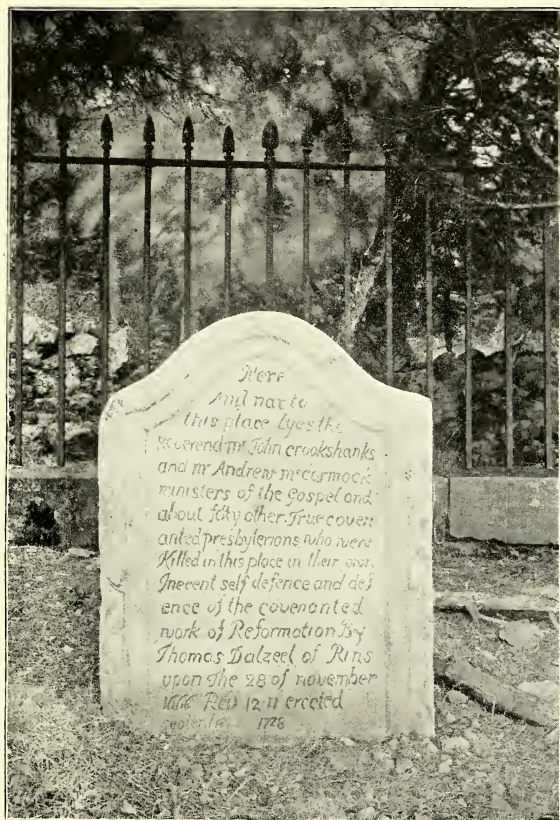 Here
And near to
this place lyes the
Reverend mr John crookshanks
and mr Andrew mccormock
ministers of the Gospel and
about fifty other True coven
anted presbyterians who were
Killed in this place in their own
Inocent self defence and def
ence of the covenanted
work of Reformation By
Thomas Dalzeel of Bins
upon The 28 of november
1666 Rev 12-11 erected
1728